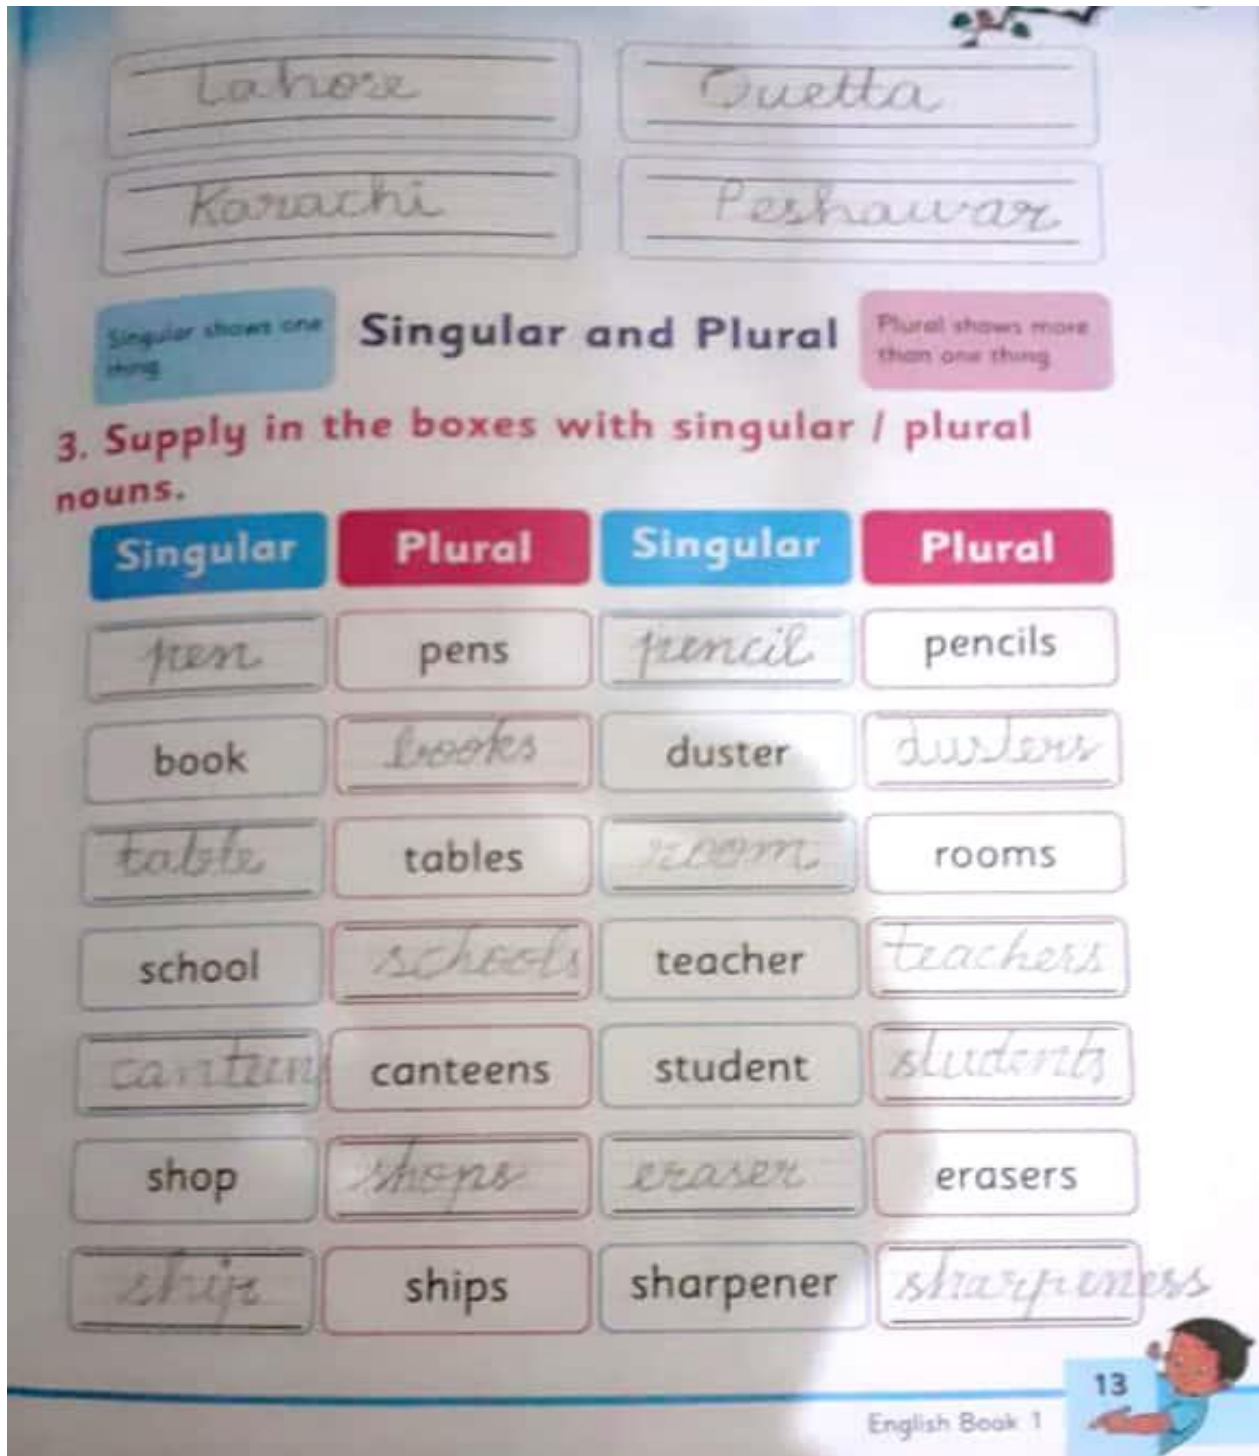 Lahore Quetta
Karachi Peshawar
Singular shows one thing
Singular and Plural
Plural shows more than one thing
3. Supply in the boxes with singular / plural
nouns.
Singular Plural Singular Plural
pen pens pencil pencils
book books duster dusters
table tables room rooms
school schools teacher teachers
canteen canteens student students
shop shops eraser erasers
ship ships sharpener sharpeners
13
English Book 1